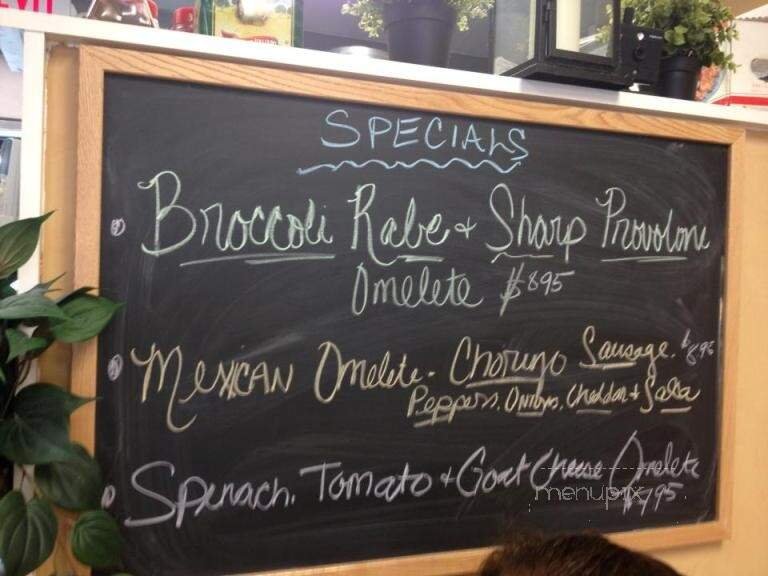 SPECIALS
Broccoli Rabe + Sharp Provolone
Omelete $8.95
MEXICAN Omelete. Chorizo Sausage. $8.95
Peppers. Onions. Cheddar + Salsa
Spinach. Tomato + Goat Cheese Omelete
$7.95
menupix